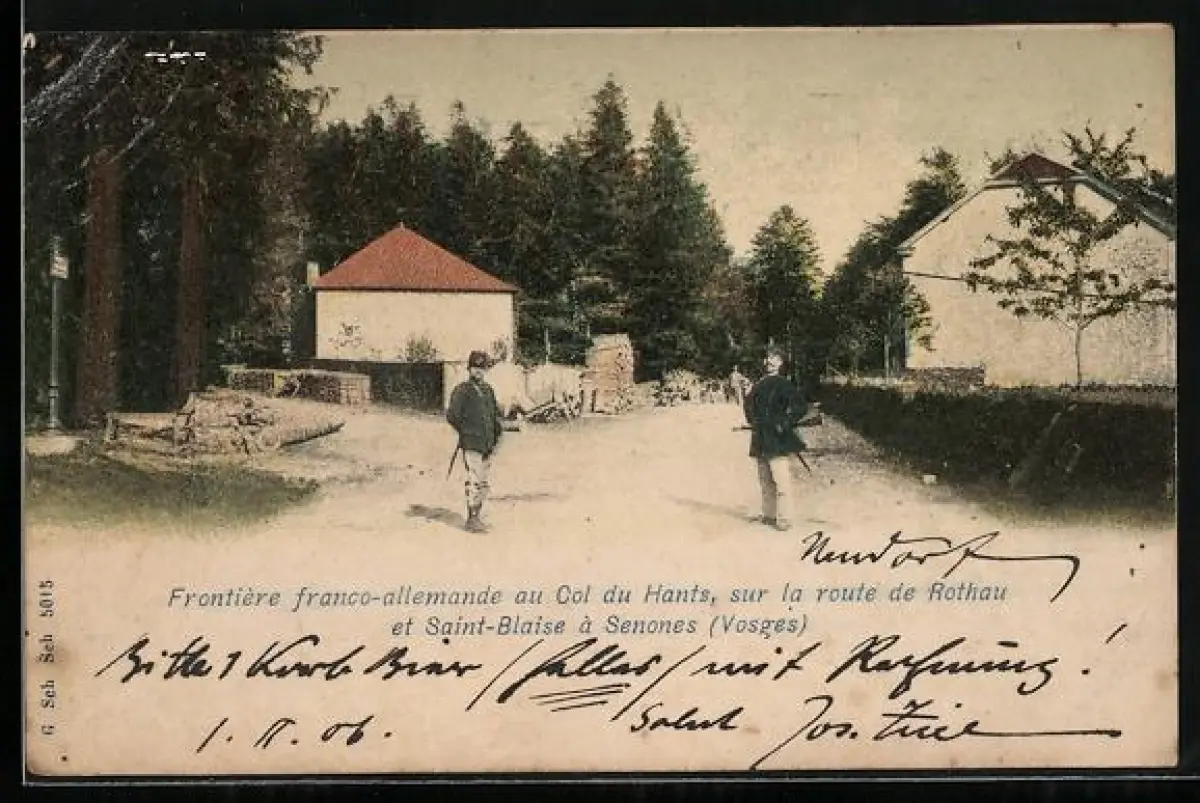 Neudorf
Frontière franco-allemande au Col du Hants, sur la route de Rothau
et Saint-Blaise à Senones (Vosges)
Bitte 1 Korb Bier / mit Rechnung!
1. II. 06. Salut Jos.
G Sch Sch 5015